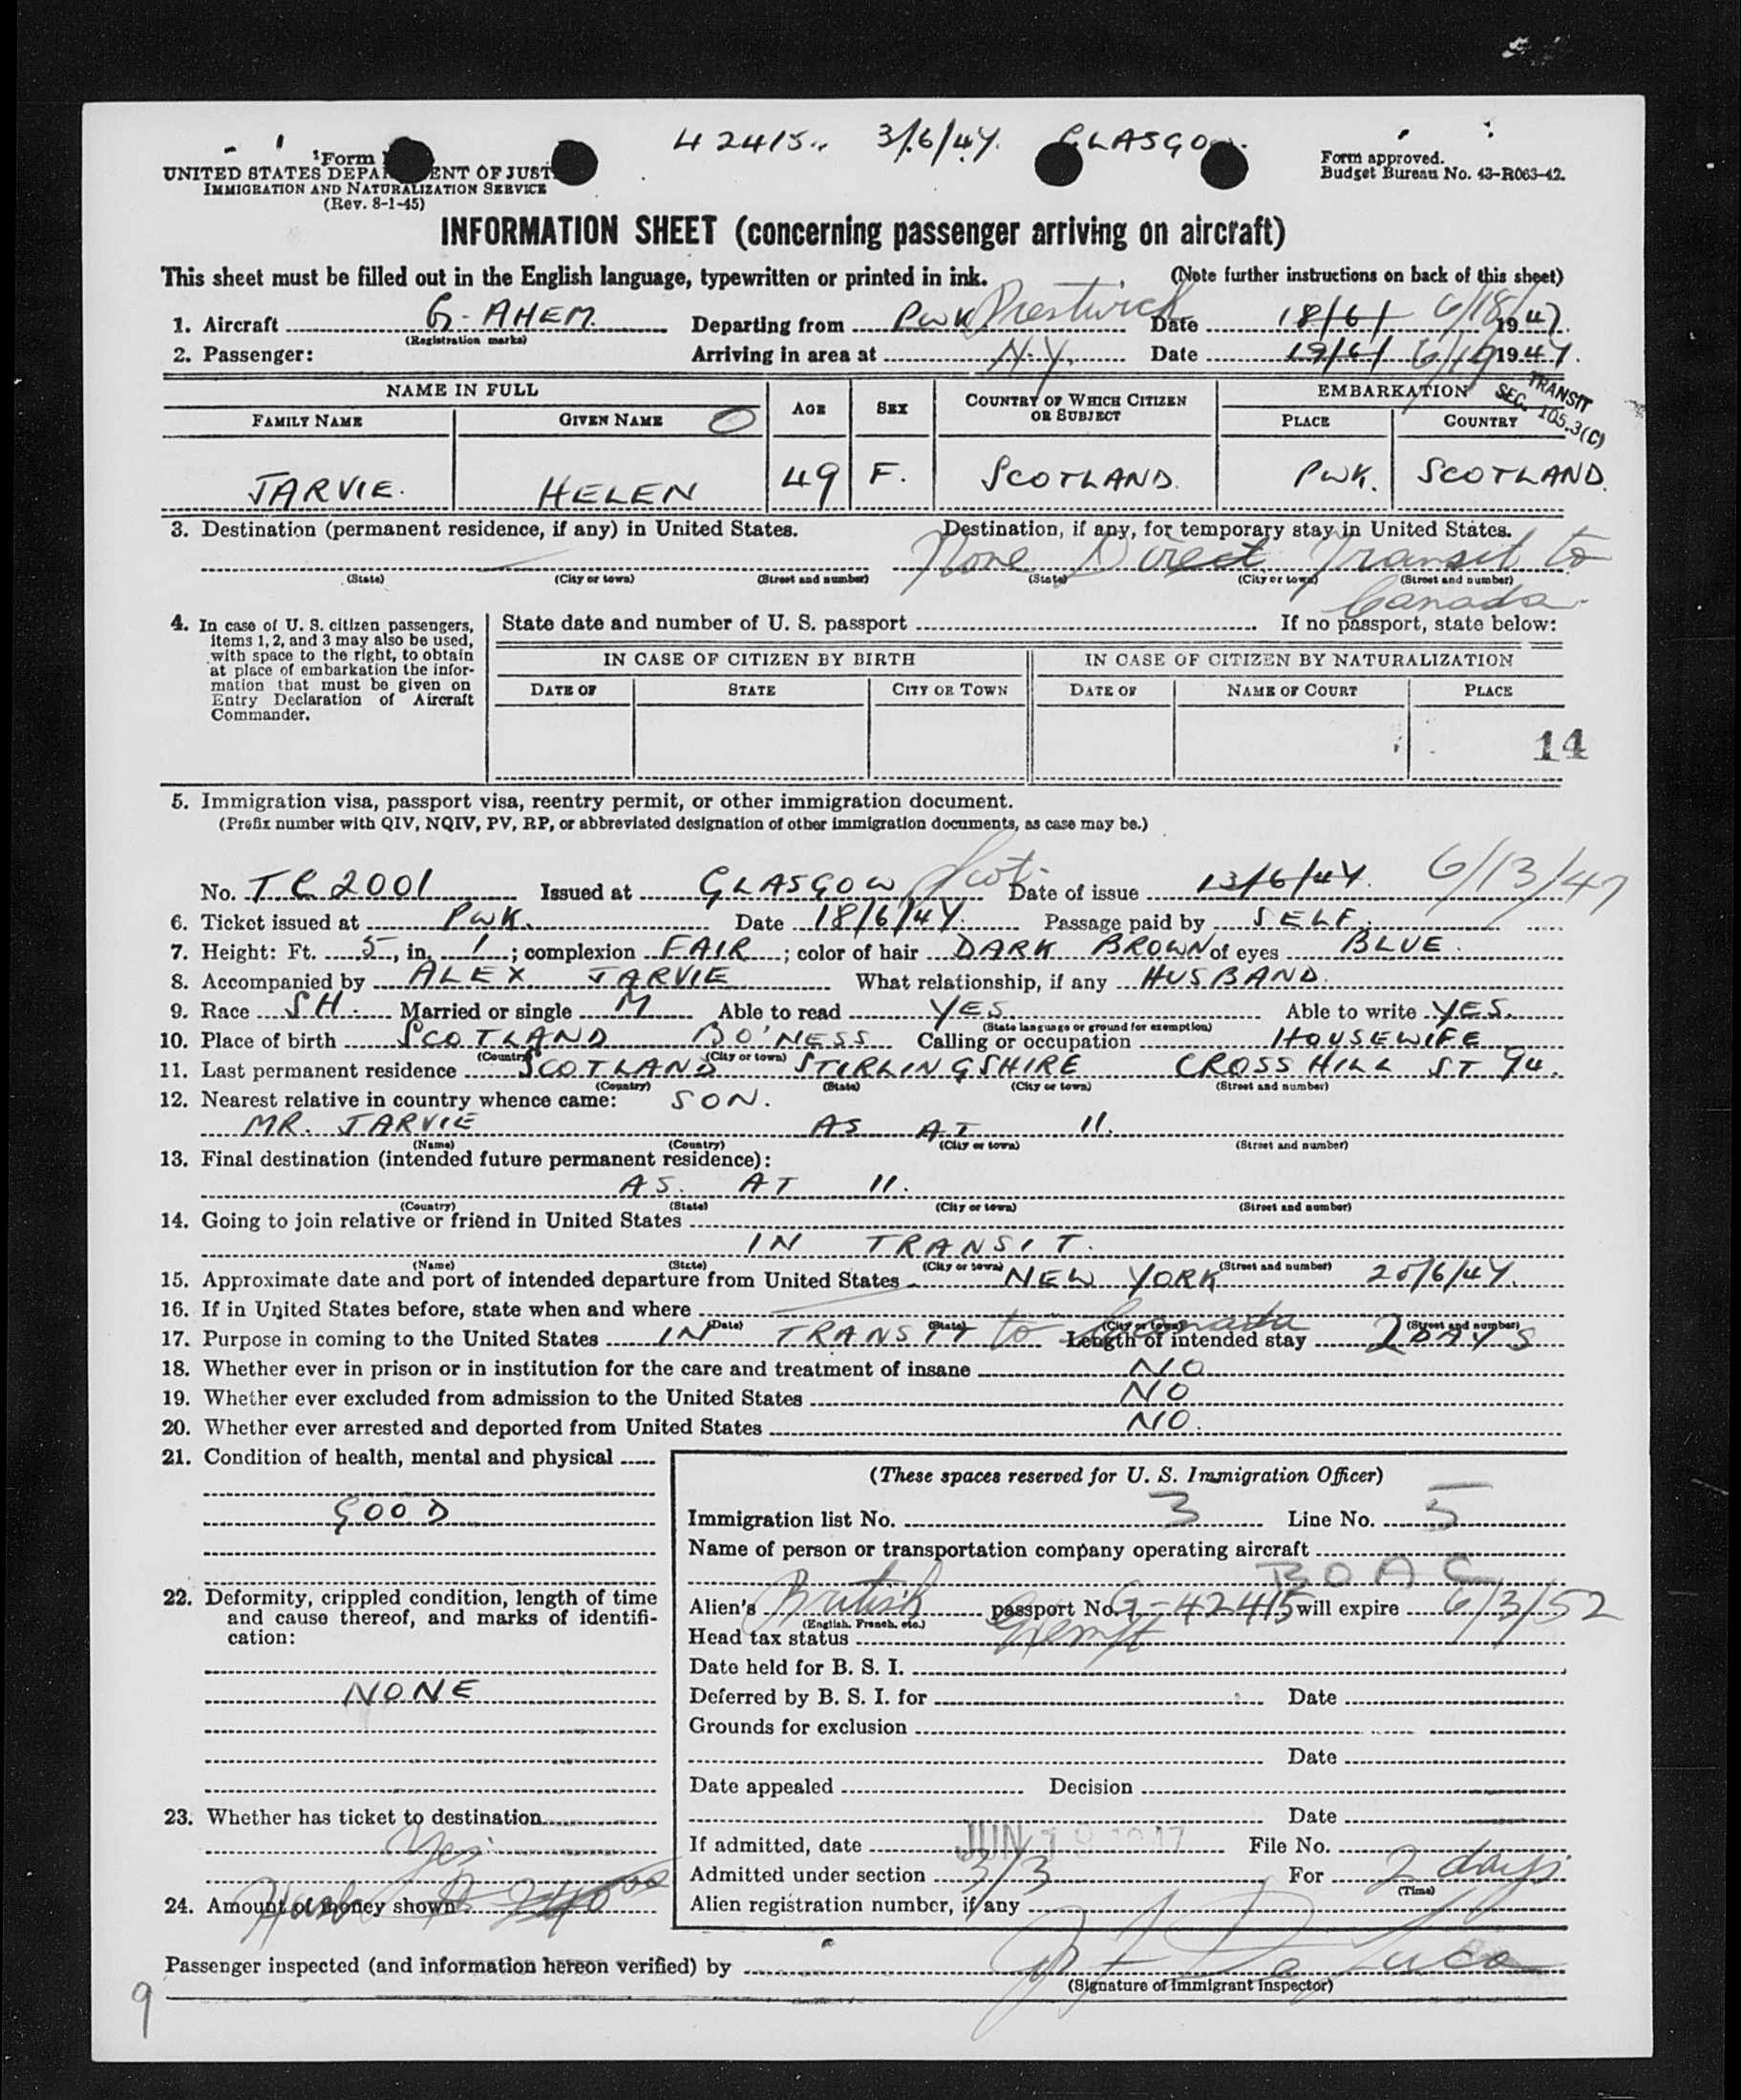 42415.. 3/6/47. GLASGO
Form
UNITED STATES DEPA ENT OF JUST
IMMIGRATION AND NATURALIZATION SERVICE
(Rev. 8-1-45)
Form approved.
Budget Bureau No. 43-R063-42.
INFORMATION SHEET (concerning passenger arriving on aircraft)
This sheet must be filled out in the English language, typewritten or printed in ink. (Note further instructions on back of this sheet)
1. Aircraft G-AHEM. Departing from PWK Prestwick Date 18/6/ 6/18/1947.
(Registration marks)
2. Passenger: Arriving in area at N.Y. Date 19/6/ 6/19 1947.
TRANSIT
SEC. 105.3(C)
NAME IN FULL AGE SEX COUNTRY OF WHICH CITIZEN OR SUBJECT EMBARKATION
FAMILY NAME GIVEN NAME PLACE COUNTRY
JARVIE. HELEN 49 F. SCOTLAND. PWK. SCOTLAND.
3. Destination (permanent residence, if any) in United States. Destination, if any, for temporary stay in United States.
None Direct Transit to
(State) (City or town) (Street and number) (State) (City or town) (Street and number)
Canada.
4. In case of U. S. citizen passengers, items 1, 2, and 3 may also be used, with space to the right, to obtain at place of embarkation the information that must be given on Entry Declaration of Aircraft Commander.
State date and number of U. S. passport If no passport, state below:
IN CASE OF CITIZEN BY BIRTH IN CASE OF CITIZEN BY NATURALIZATION
DATE OF STATE CITY OR TOWN DATE OF NAME OF COURT PLACE
14
5. Immigration visa, passport visa, reentry permit, or other immigration document.
(Prefix number with QIV, NQIV, PV, RP, or abbreviated designation of other immigration documents, as case may be.)
No. TC 2001 Issued at GLASGOW Scot. Date of issue 13/6/47. 6/13/47
6. Ticket issued at PWK. Date 18/6/47. Passage paid by SELF.
7. Height: Ft. 5, in. 1; complexion FAIR; color of hair DARK BROWN of eyes BLUE.
8. Accompanied by ALEX JARVIE What relationship, if any HUSBAND.
9. Race SH. Married or single M Able to read YES Able to write YES.
(State language or ground for exemption)
10. Place of birth SCOTLAND BO'NESS Calling or occupation HOUSEWIFE
(Country) (City or town)
11. Last permanent residence SCOTLAND STIRLINGSHIRE CROSS HILL ST 94.
(Country) (State) (City or town) (Street and number)
12. Nearest relative in country whence came: SON.
MR. JARVIE AS AT 11.
(Name) (Country) (City or town) (Street and number)
13. Final destination (intended future permanent residence):
AS. AT 11.
(Country) (State) (City or town) (Street and number)
14. Going to join relative or friend in United States
IN TRANSIT.
(Name) (State) (City or town) (Street and number)
15. Approximate date and port of intended departure from United States NEW YORK 20/6/47.
16. If in United States before, state when and where
(Date) (State) (City or town) (Street and number)
17. Purpose in coming to the United States IN TRANSIT to Canada Length of intended stay 2 DAYS
18. Whether ever in prison or in institution for the care and treatment of insane NO
19. Whether ever excluded from admission to the United States NO
20. Whether ever arrested and deported from United States NO.
21. Condition of health, mental and physical
GOOD
22. Deformity, crippled condition, length of time and cause thereof, and marks of identification:
NONE
23. Whether has ticket to destination
Yes
24. Amount of money shown $ 240 00
(These spaces reserved for U. S. Immigration Officer)
Immigration list No. 3 Line No. 5
Name of person or transportation company operating aircraft
BOAC
Alien's British passport No. G-42415 will expire 6/3/52
(English, French, etc.)
Head tax status Exempt
Date held for B. S. I.
Deferred by B. S. I. for Date
Grounds for exclusion
Date
Date appealed Decision
Date
If admitted, date JUN 19 1947 File No.
Admitted under section 3/3 For 2 days
(Time)
Alien registration number, if any
Passenger inspected (and information hereon verified) by De Luca
(Signature of Immigrant Inspector)
9